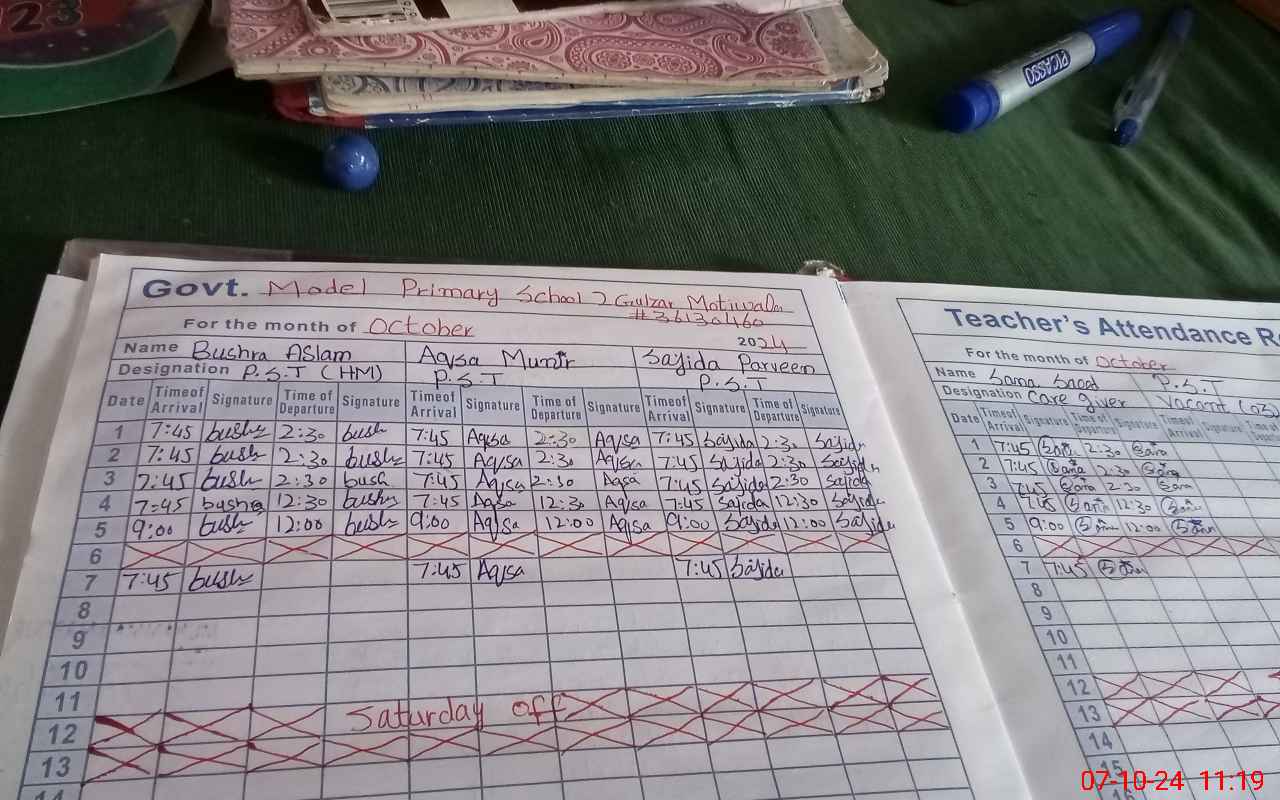 23
PICASSO
Govt. Model Primary School Gulzar Motiwala
#36130460
For the month of October
2024
Name Bushra Aslam Aqsa Munir Sajida Parveen
Designation P.S.T (HM) P.S.T P.S.T
Date Time of Arrival Signature Time of Departure Signature Time of Arrival Signature Time of Departure Signature Time of Arrival Signature Time of Departure Signature
1 7:45 bush 2:30 bush 7:45 Aqsa 2:30 Aqsa 7:45 Sajida 2:30 Sajida
2 7:45 bush 2:30 bush 7:45 Aqsa 2:30 Aqsa 7:45 Sajida 2:30 Sajida
3 7:45 bush 2:30 bush 7:45 Aqsa 2:30 Aqsa 7:45 Sajida 2:30 Sajida
4 7:45 bushra 12:30 bush 7:45 Aqsa 12:30 Aqsa 7:45 Sajida 12:30 Sajida
5 9:00 bush 12:00 bush 9:00 Aqsa 12:00 Aqsa 9:00 Sajida 12:00 Sajida
6
7 7:45 bush 7:45 Aqsa 7:45 Sajida
8
9
10
11
12 Saturday off
13
14
Teacher's Attendance Re
For the month of October
Name Sana Saeed P.S.T
Designation Care giver Vacant
Date Time of Arrival Signature Time of Departure Signature Time of Arrival Signature Time of
1 7:45 Sana 2:30 Sana
2 7:45 Sana 2:30 Sana
3 7:45 Sana 2:30 Sana
4 7:45 Sana 12:30 Sana
5 9:00 Sana 12:00 Sana
6
7 7:45 Sana
8
9
10
11
12
13
14
15
16
07-10-24 11:19